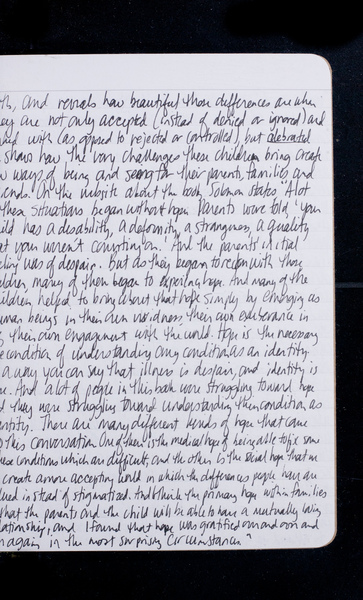 th, and reveals how beautiful those differences are when
ey are not only accepted (instead of denied or ignored) and
ued with (as opposed to rejected or controlled), but celebrated
shows how the very challenges these children bring create
w ways of being and seeing for their parents, families and
iends. On the website about the book, Solomon states "A lot
these situations began without hope. Parents were told, 'your
ild has a disability, a deformity, a strangeness, a quality
at you weren't counting on.' And the parents' initial
eling was of despair. But as they began to reckon with those
ildren, many of them began to experience hope. And many of the
ildren helped to bring about that hope simply by emerging as
uman beings in their own its own
their own engagement with the world. Hope is the necessary
econdition of understanding any condition as an identity.
a way you can say that illness is despair, and identity is
e. And a lot of people in this book were struggling toward hope
d they were struggling toward understanding their condition as
entity. There are many different kinds of hope that came
o this conversation. One of them is the medical hope of being able to fix some
ese conditions which are difficult, and the other is the social hope that we
create a more accepting world in which the differences people have are
lued instead of stigmatized. And I think the primary hope within families
that the parents and the child will be able to have a mutually loving
lationship, and I found that hope was gratified over and over and
r again in the most surprising circumstances."